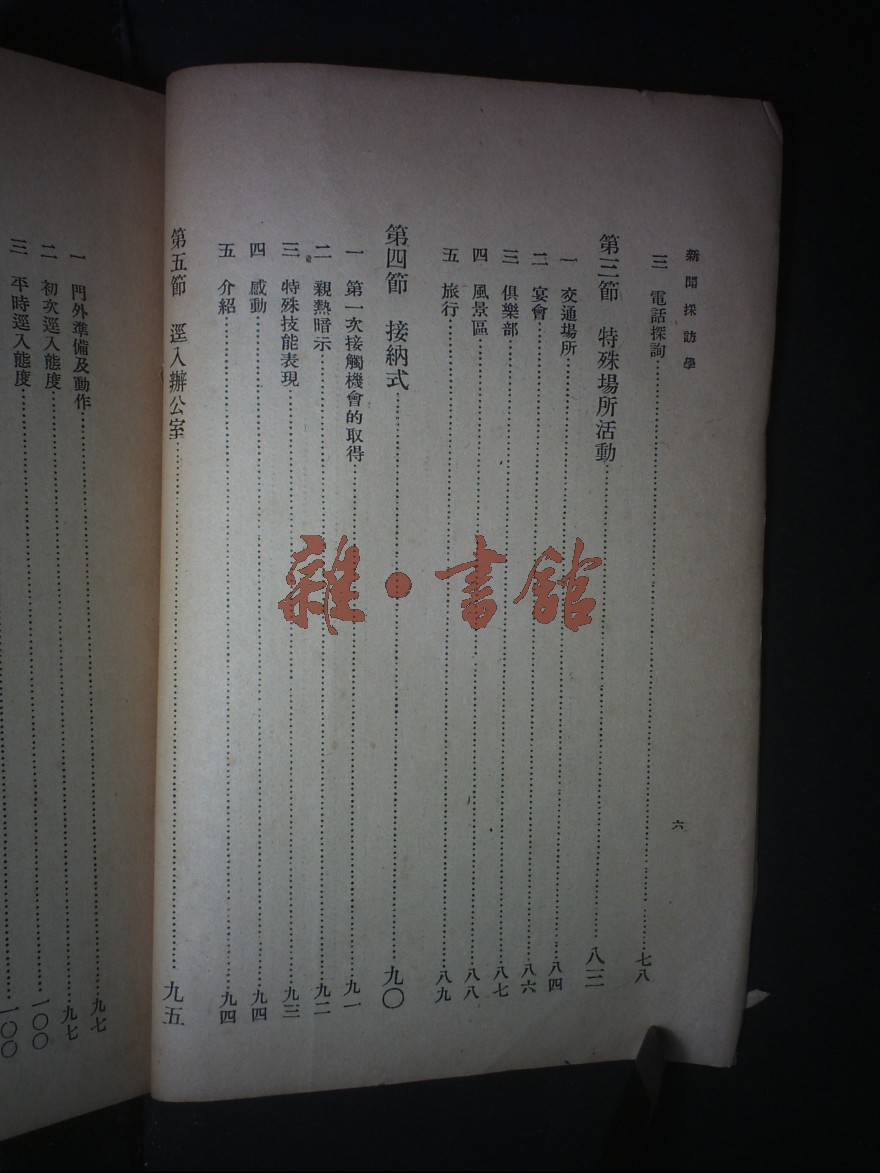 新聞採訪學
六
三 電話探詢……七八
第三節 特殊場所活動……八三
一 交通場所……八四
二 宴會……八六
三 俱樂部……八七
四 風景區……八八
五 旅行……八九
第四節 接納式……九〇
一 第一次接觸機會的取得……九一
二 親熱暗示……九二
三 特殊技能表現……九三
四 感動……九四
五 介紹……九四
第五節 逕入辦公室……九五
一 門外準備及動作……九七
二 初次逕入態度……九七
三 平時逕入態度……一〇〇
一〇〇
雜·書館